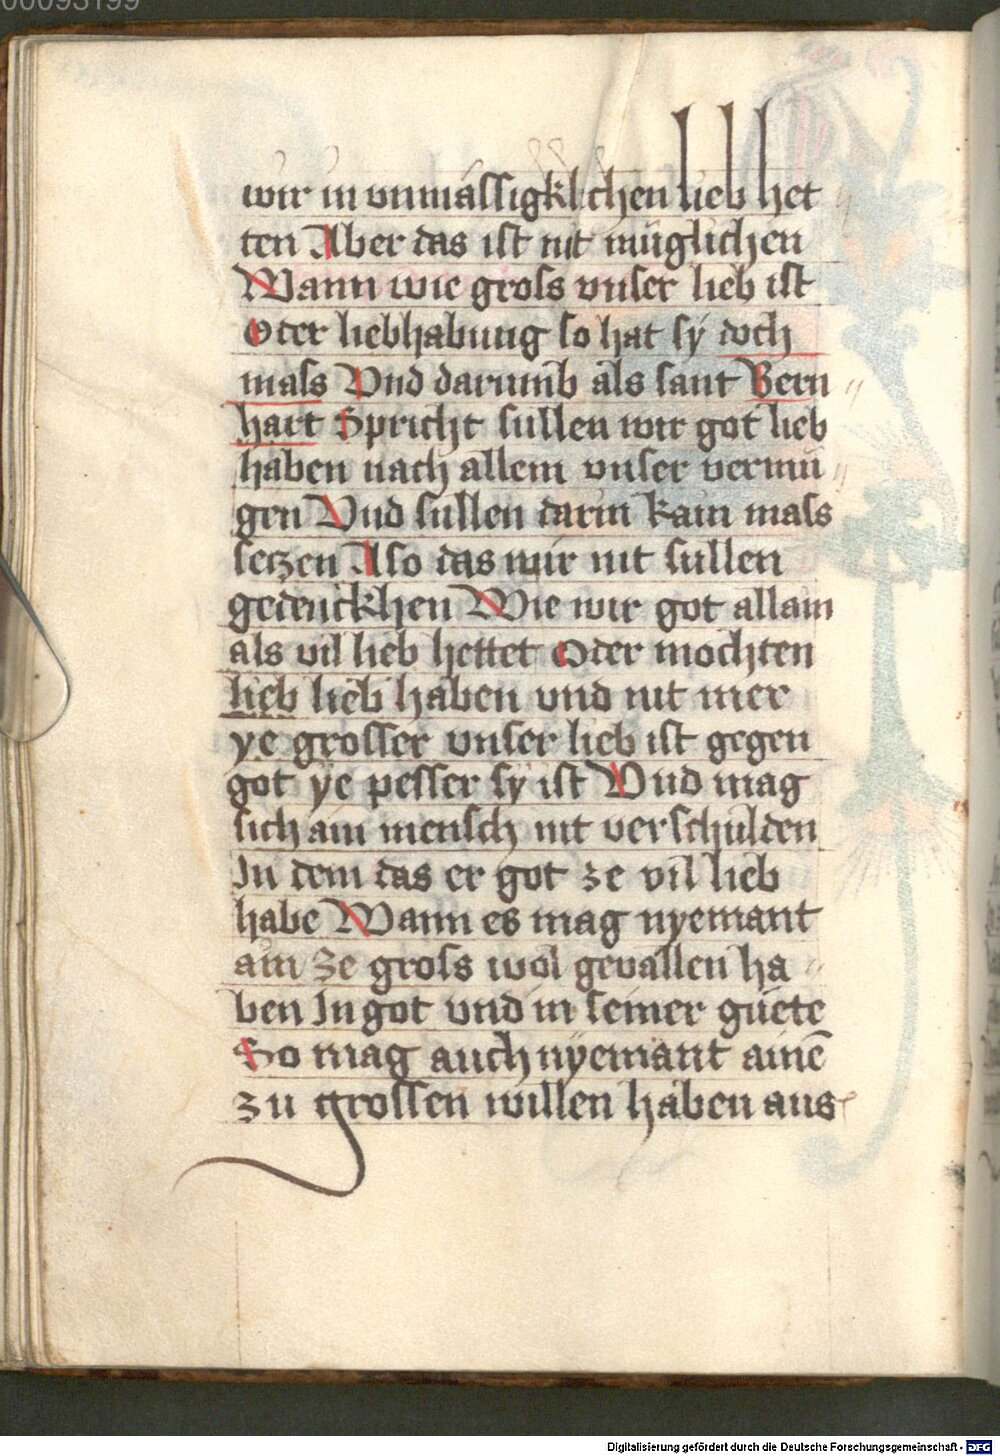 00093199
wir in vnmässigklichen lieb het
ten Aber das ist nit müglichen
Wann wie gross vnser lieb ist
Oder liebhabung so hat sÿ doch
mass Vnd darumb als sant Bern
hart Spricht sullen wir got lieb
haben nach allem vnser vermü
gen Vnd sullen darin kain mass
seczen Also das wir nit sullen
gedenckhen Wie wir got allain
als vil lieb hettet Oder möchten
lieb lieb haben vnd nit mer
ye grosser vnser lieb ist gegen
got ye pesser sy ist Vnd mag
sich ain mensch nit verschulden
In dem das er got ze vil lieb
habe Wann es mag nyemant
ain ze gross wol geuallen ha
ben In got vnd in seiner güete
So mag auch nyemant ainē
zu grossen willen haben aus
Digitalisierung gefördert durch die Deutsche Forschungsgemeinschaft - DFG